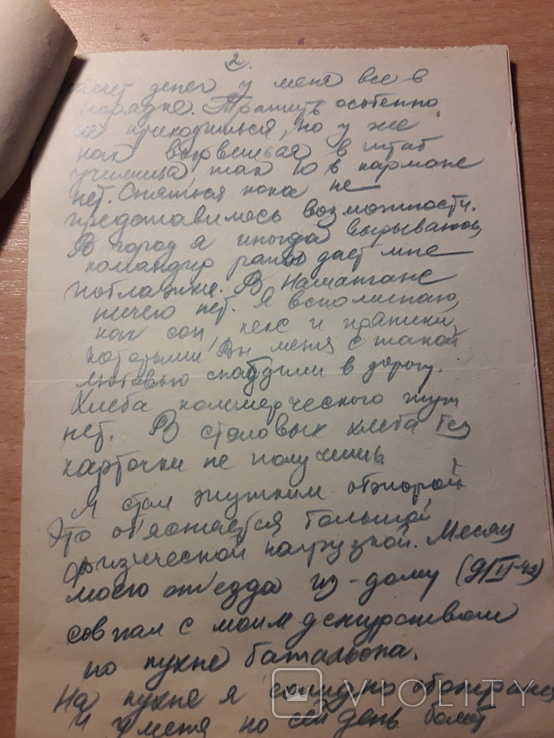 2.
счет денег у меня все в
порядке. Тратить особенно
не приходиться, но у же
как вырвешься в штаб
училища так 10 в кармане
нет. Сняться пока не
предоставилось возможности.
В город я иногда вырываюсь
командир роты дает мне
поблажки. В Намангане
ничего нет. Я вспоминаю,
как сон, кекс и пряники
которыми Вы меня с такой
любовью снабдили в дорогу.
Хлеба коммерческого тут
нет. В столовых хлеба без
карточки не получишь
Я стал жутким обжорой.
Это об'ясняется большой
физической нагрузкой. Месяц
моего от'езда из-дому
совпал с моим дежурством
по кухне батальона.
На кухне я
И у меня по сей день
VIOLITY